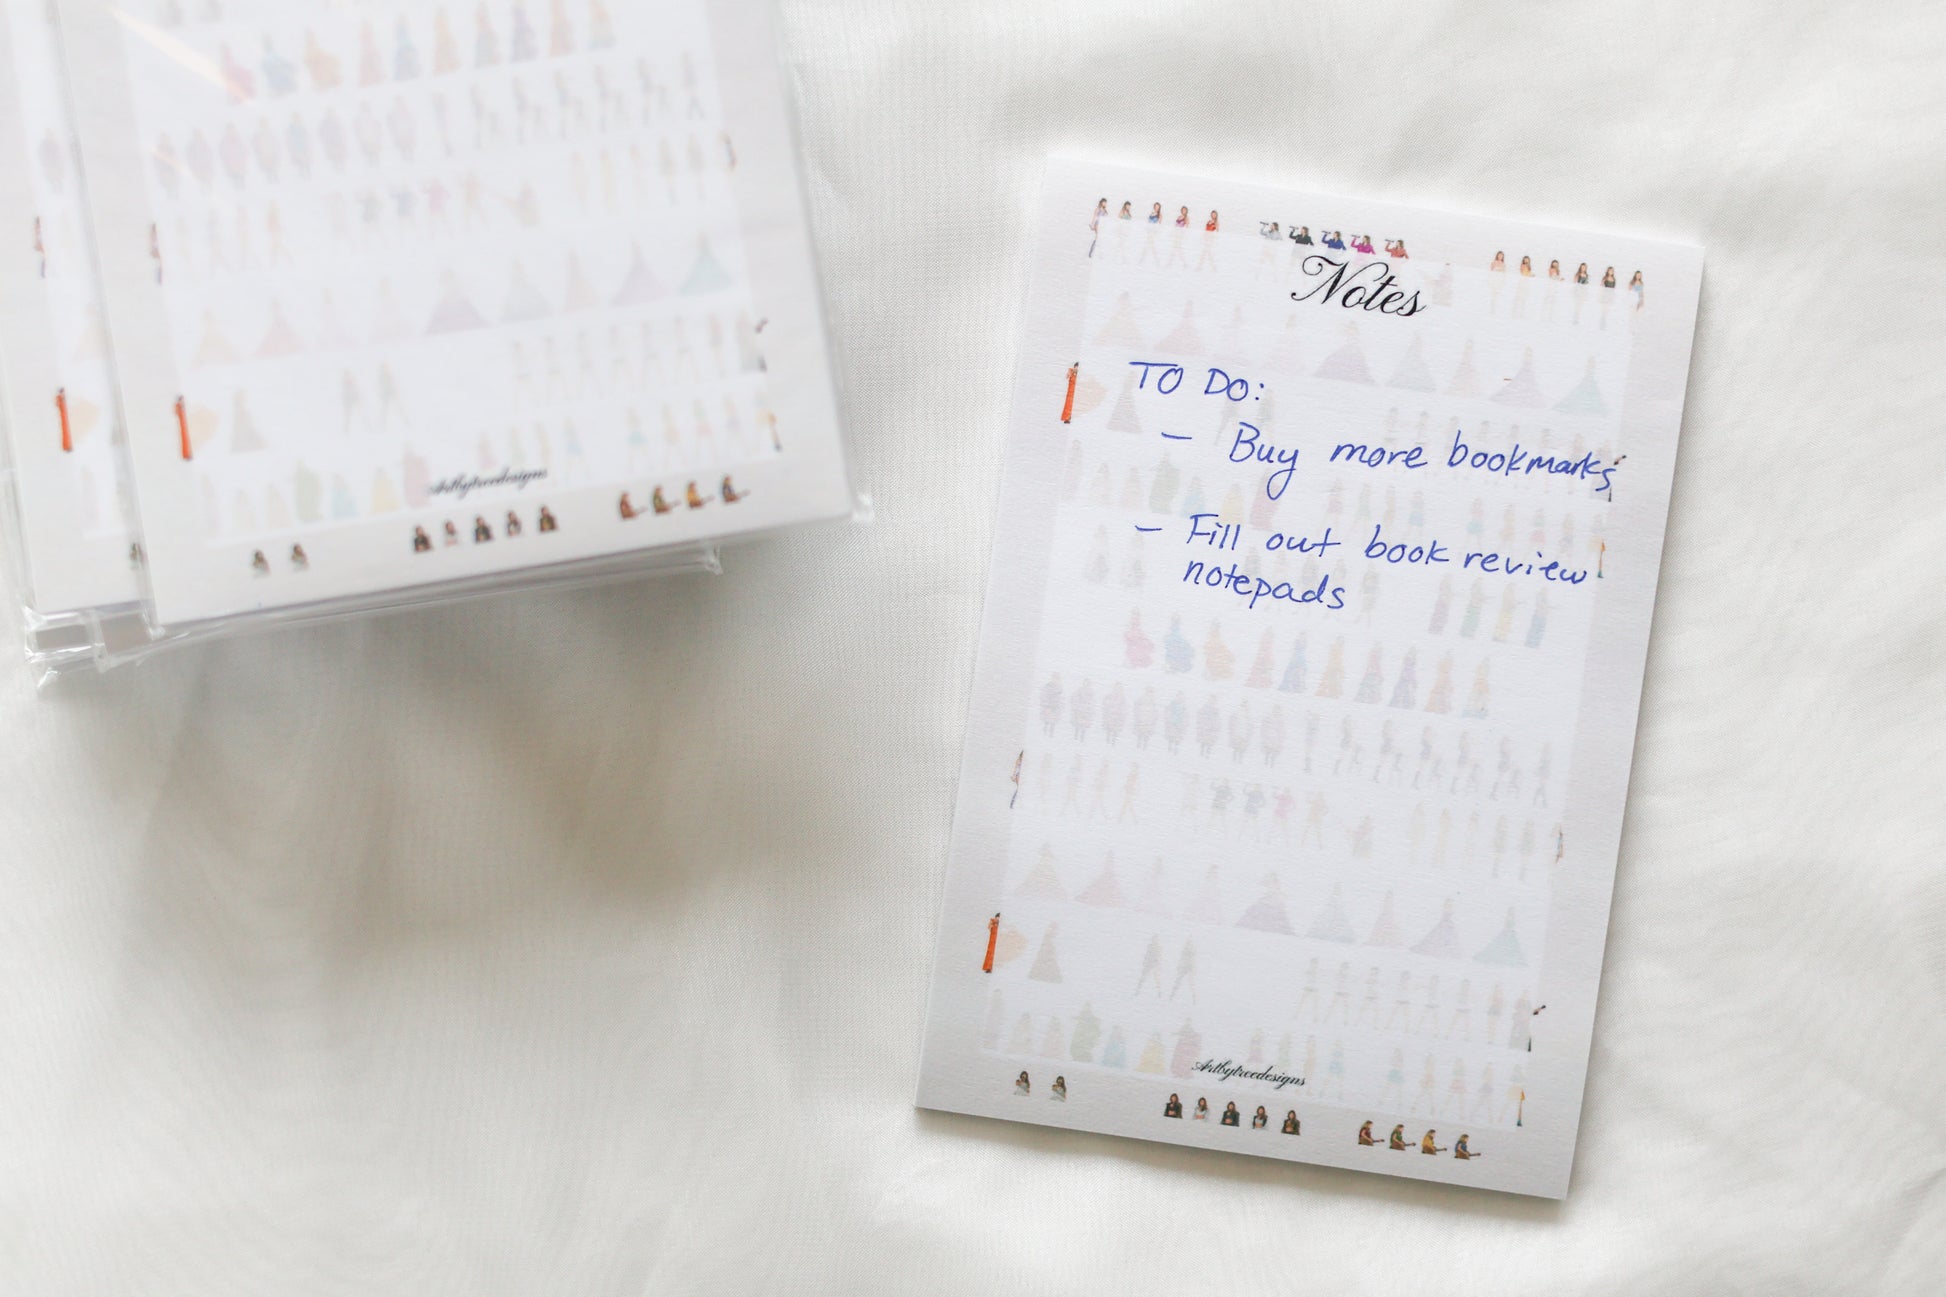 Artbytreedesigns
Notes
TO DO:
- Buy more bookmarks
- Fill out book review
notepads
Artbytreedesigns